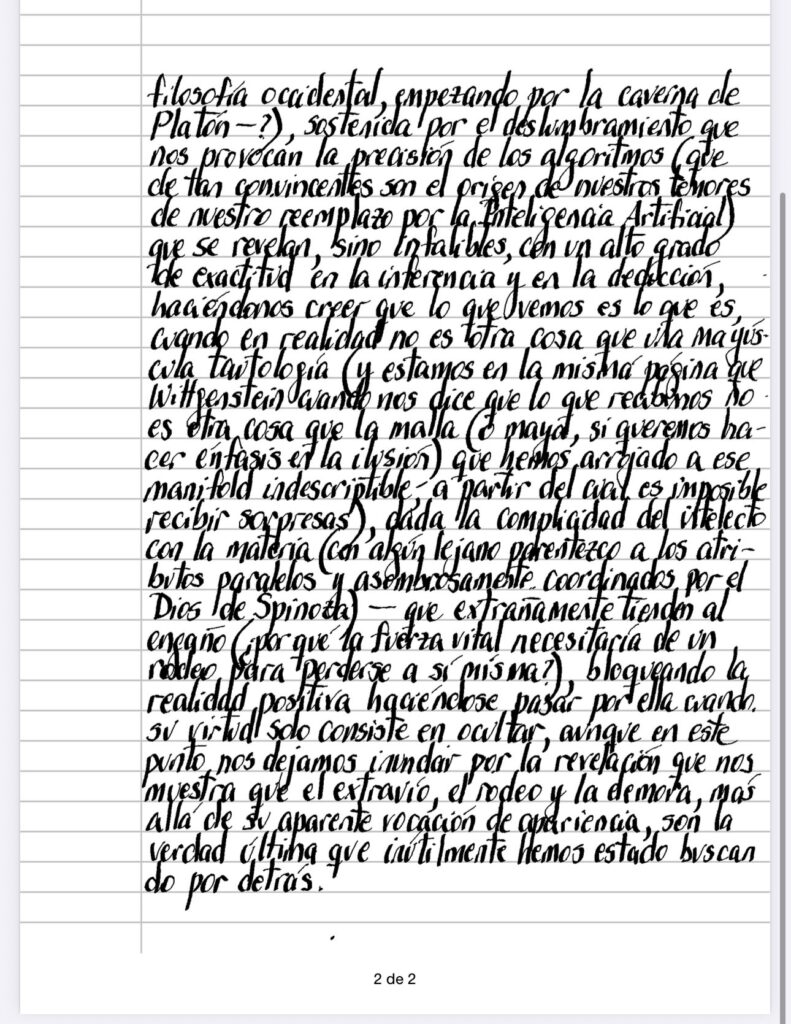 filosofía occidental, empezando por la caverna de
Platón—?), sostenida por el deslumbramiento que
nos provocan la precisión de los algoritmos (que
de tan convincentes son el origen de nuestros temores
de nuestro reemplazo por la Inteligencia Artificial)
que se revelan, sino infalibles, con un alto grado
de exactitud en la inferencia y en la deducción,
haciéndonos creer que lo que vemos es lo que es,
cuando en realidad no es otra cosa que una mayús-
cula tautología (y estamos en la misma página que
Wittgenstein cuando nos dice que lo que recibimos no
es otra cosa que la malla (o maya, si queremos ha-
cer énfasis en la ilusión) que hemos arrojado a ese
manifold indescriptible, a partir del cual es imposible
recibir sorpresas), dada la complicidad del intelecto
con la materia (con algún lejano parentezco a los atri-
butos paralelos y asombrosamente coordinados por el
Dios de Spinoza) — que extrañamente tienden al
engaño (¿por qué la fuerza vital necesitaría de un
rodeo para perderse a sí misma?), bloqueando la
realidad positiva haciéndose pasar por ella cuando
su virtud solo consiste en ocultar, aunque en este
punto nos dejamos inundar por la revelación que nos
muestra que el extravío, el rodeo y la demora, más
allá de su aparente vocación de apariencia, son la
verdad última que inútilmente hemos estado buscan
do por detrás.
2 de 2